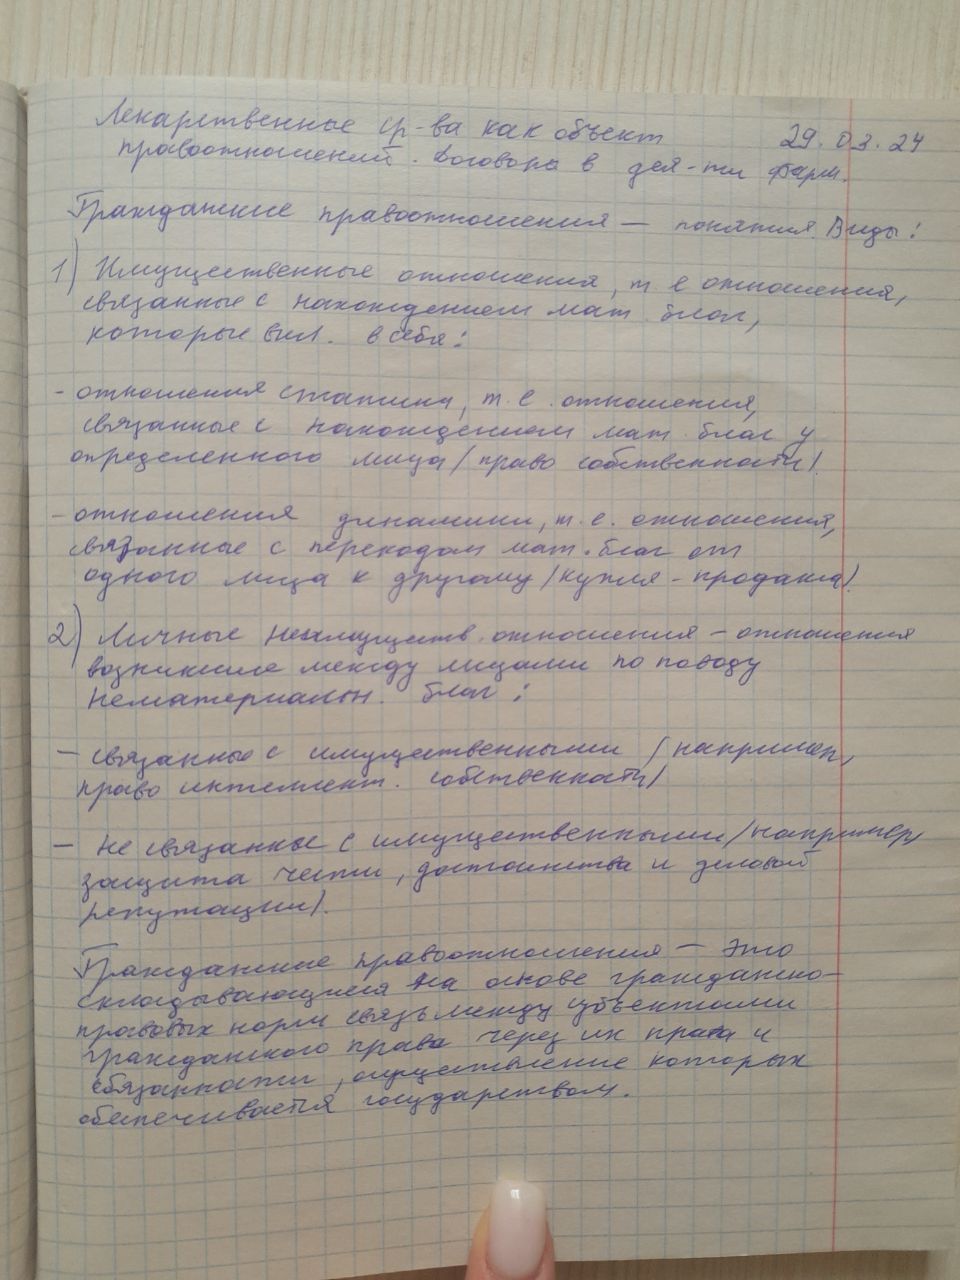 Лекарственные ср-ва как объект 29.03.24
правоотношений. Договора в дея-ти фарм.
Гражданские правоотношения — понятия. Виды:
1) Имущественные отношения, т е отношения,
связанные с нахождением мат. благ,
которые вкл. в себя:
- отношения статики, т. е. отношения,
связанные с нахождением мат. благ у
определенного лица (право собственности).
- отношения динамики, т. е. отношения,
связанные с переходом мат. благ от
одного лица к другому (купля-продажа).
2) Личные неимуществ. отношения – отношения
возникшие между лицами по поводу
нематериальн. благ:
— связанные с имущественными (например,
право интеллект. собственности)
— не связанные с имущественными (например,
защита чести, достоинства и деловой
репутации).
Гражданские правоотношения — это
складывающиеся на основе гражданско-
правовых норм связь между субъектами
гражданского права через их права и
обязанности, осуществление которых
обеспечивается государством.